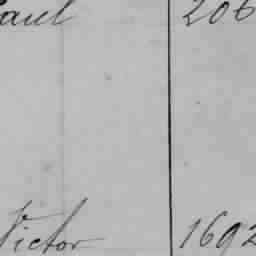 Paul 206
Victor 1692